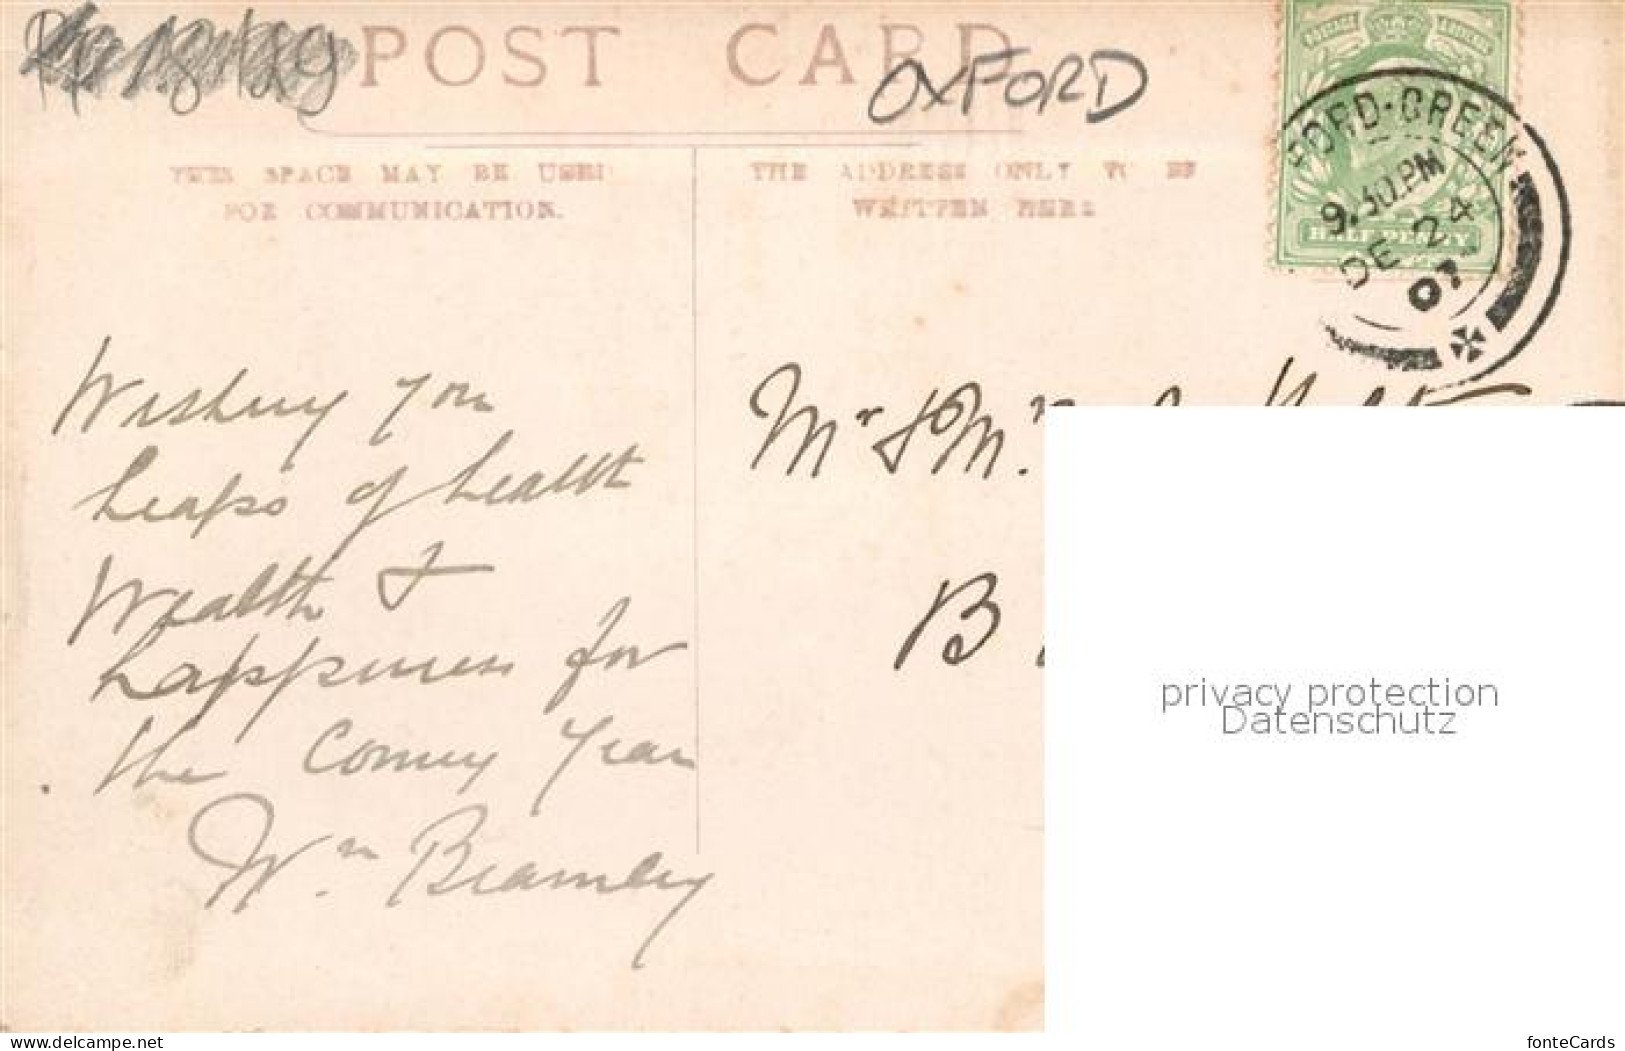 POST CARD
OXFORD
THIS SPACE MAY BE USED
FOR COMMUNICATION.
THE ADDRESS ONLY TO BE
WRITTEN HERE
POSTAGE REVENUE
HALF PENNY
FORD·GREEN
9.30.PM
DE 24
07
Wishing you
heaps of health
Wealth &
happiness for
the Coming Year
Wm Bramley
Mr & Mrs
B
privacy protection
Datenschutz
www.delcampe.net
fonteCards